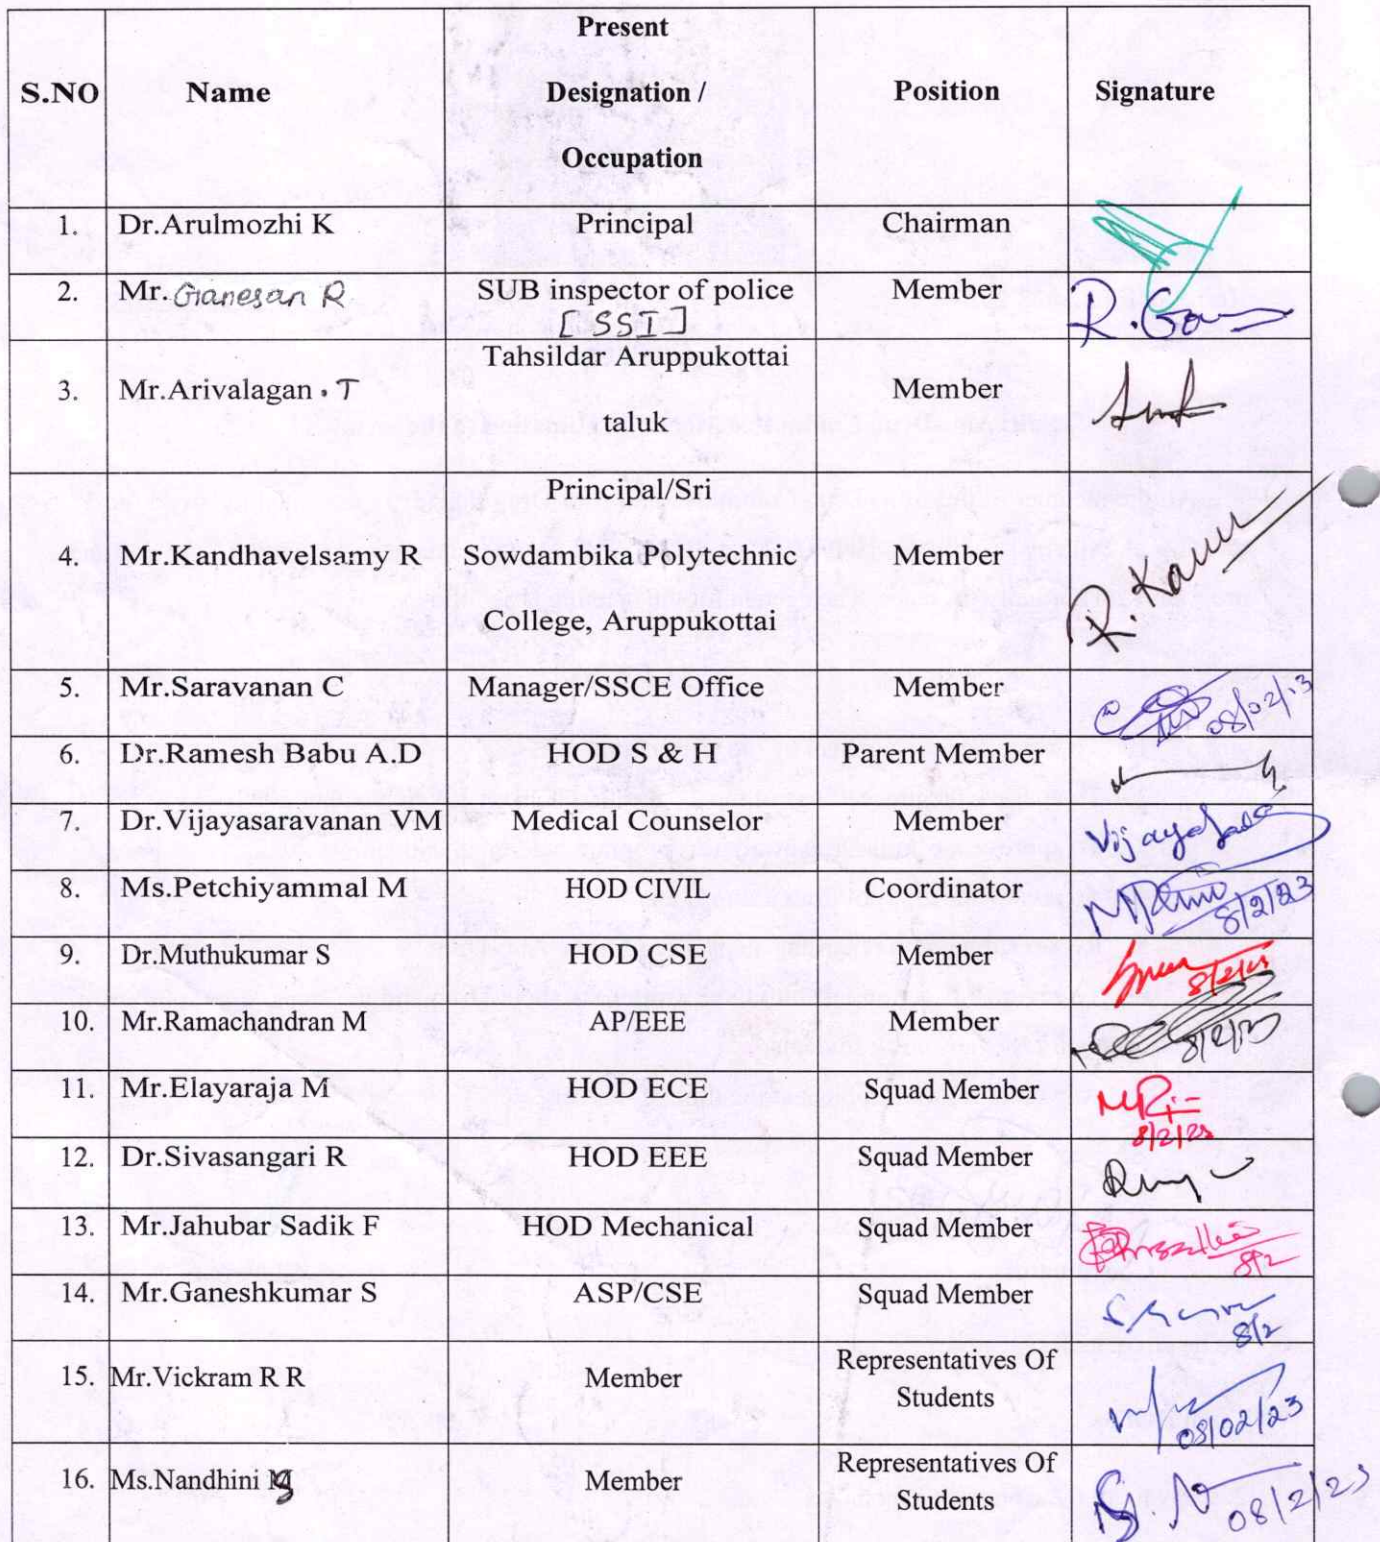 S.NO Name Present Designation / Occupation Position Signature
1. Dr.Arulmozhi K Principal Chairman
2. Mr. Ganesan R SUB inspector of police [SSI] Member R.Gan
3. Mr.Arivalagan . T Tahsildar Aruppukottai taluk Member
4. Mr.Kandhavelsamy R Principal/Sri Sowdambika Polytechnic College, Aruppukottai Member
5. Mr.Saravanan C Manager/SSCE Office Member 08/02/23
6. Dr.Ramesh Babu A.D HOD S & H Parent Member
7. Dr.Vijayasaravanan VM Medical Counselor Member
8. Ms.Petchiyammal M HOD CIVIL Coordinator 8/2/23
9. Dr.Muthukumar S HOD CSE Member 8/2/23
10. Mr.Ramachandran M AP/EEE Member 8/2/23
11. Mr.Elayaraja M HOD ECE Squad Member 8/2/23
12. Dr.Sivasangari R HOD EEE Squad Member
13. Mr.Jahubar Sadik F HOD Mechanical Squad Member 8/2
14. Mr.Ganeshkumar S ASP/CSE Squad Member 8/2
15. Mr.Vickram R R Member Representatives Of Students 08/02/23
16. Ms.Nandhini Member Representatives Of Students 08/2/23